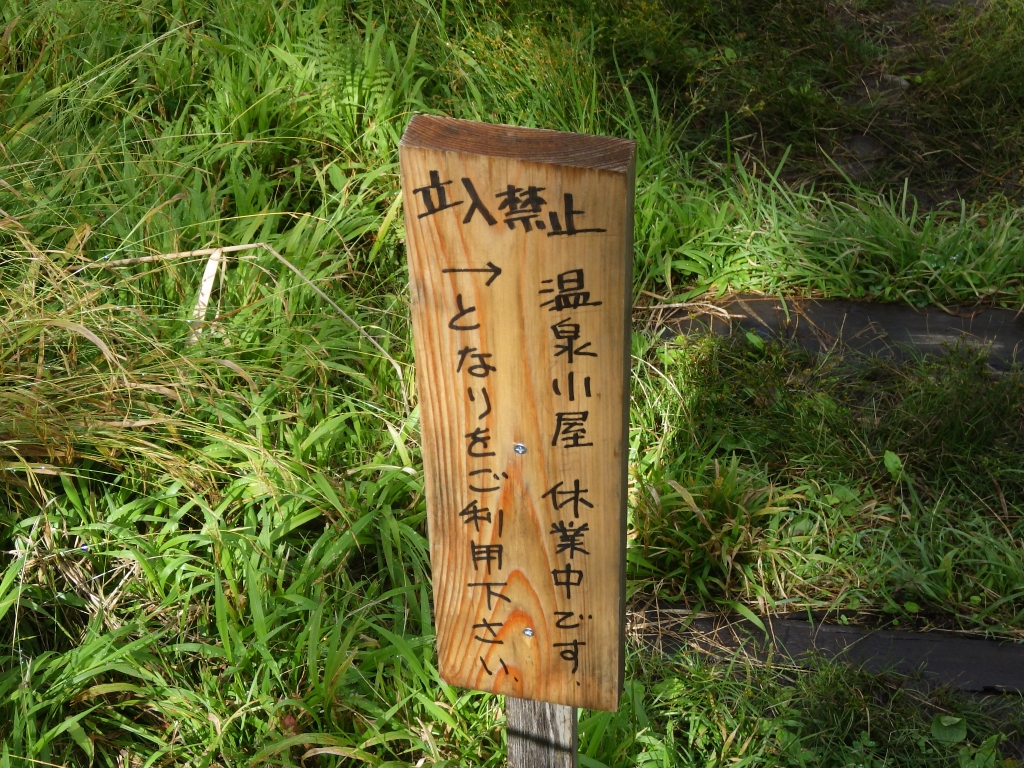 立入禁止
温泉小屋 休業中です.
→となりをご利用下さい.